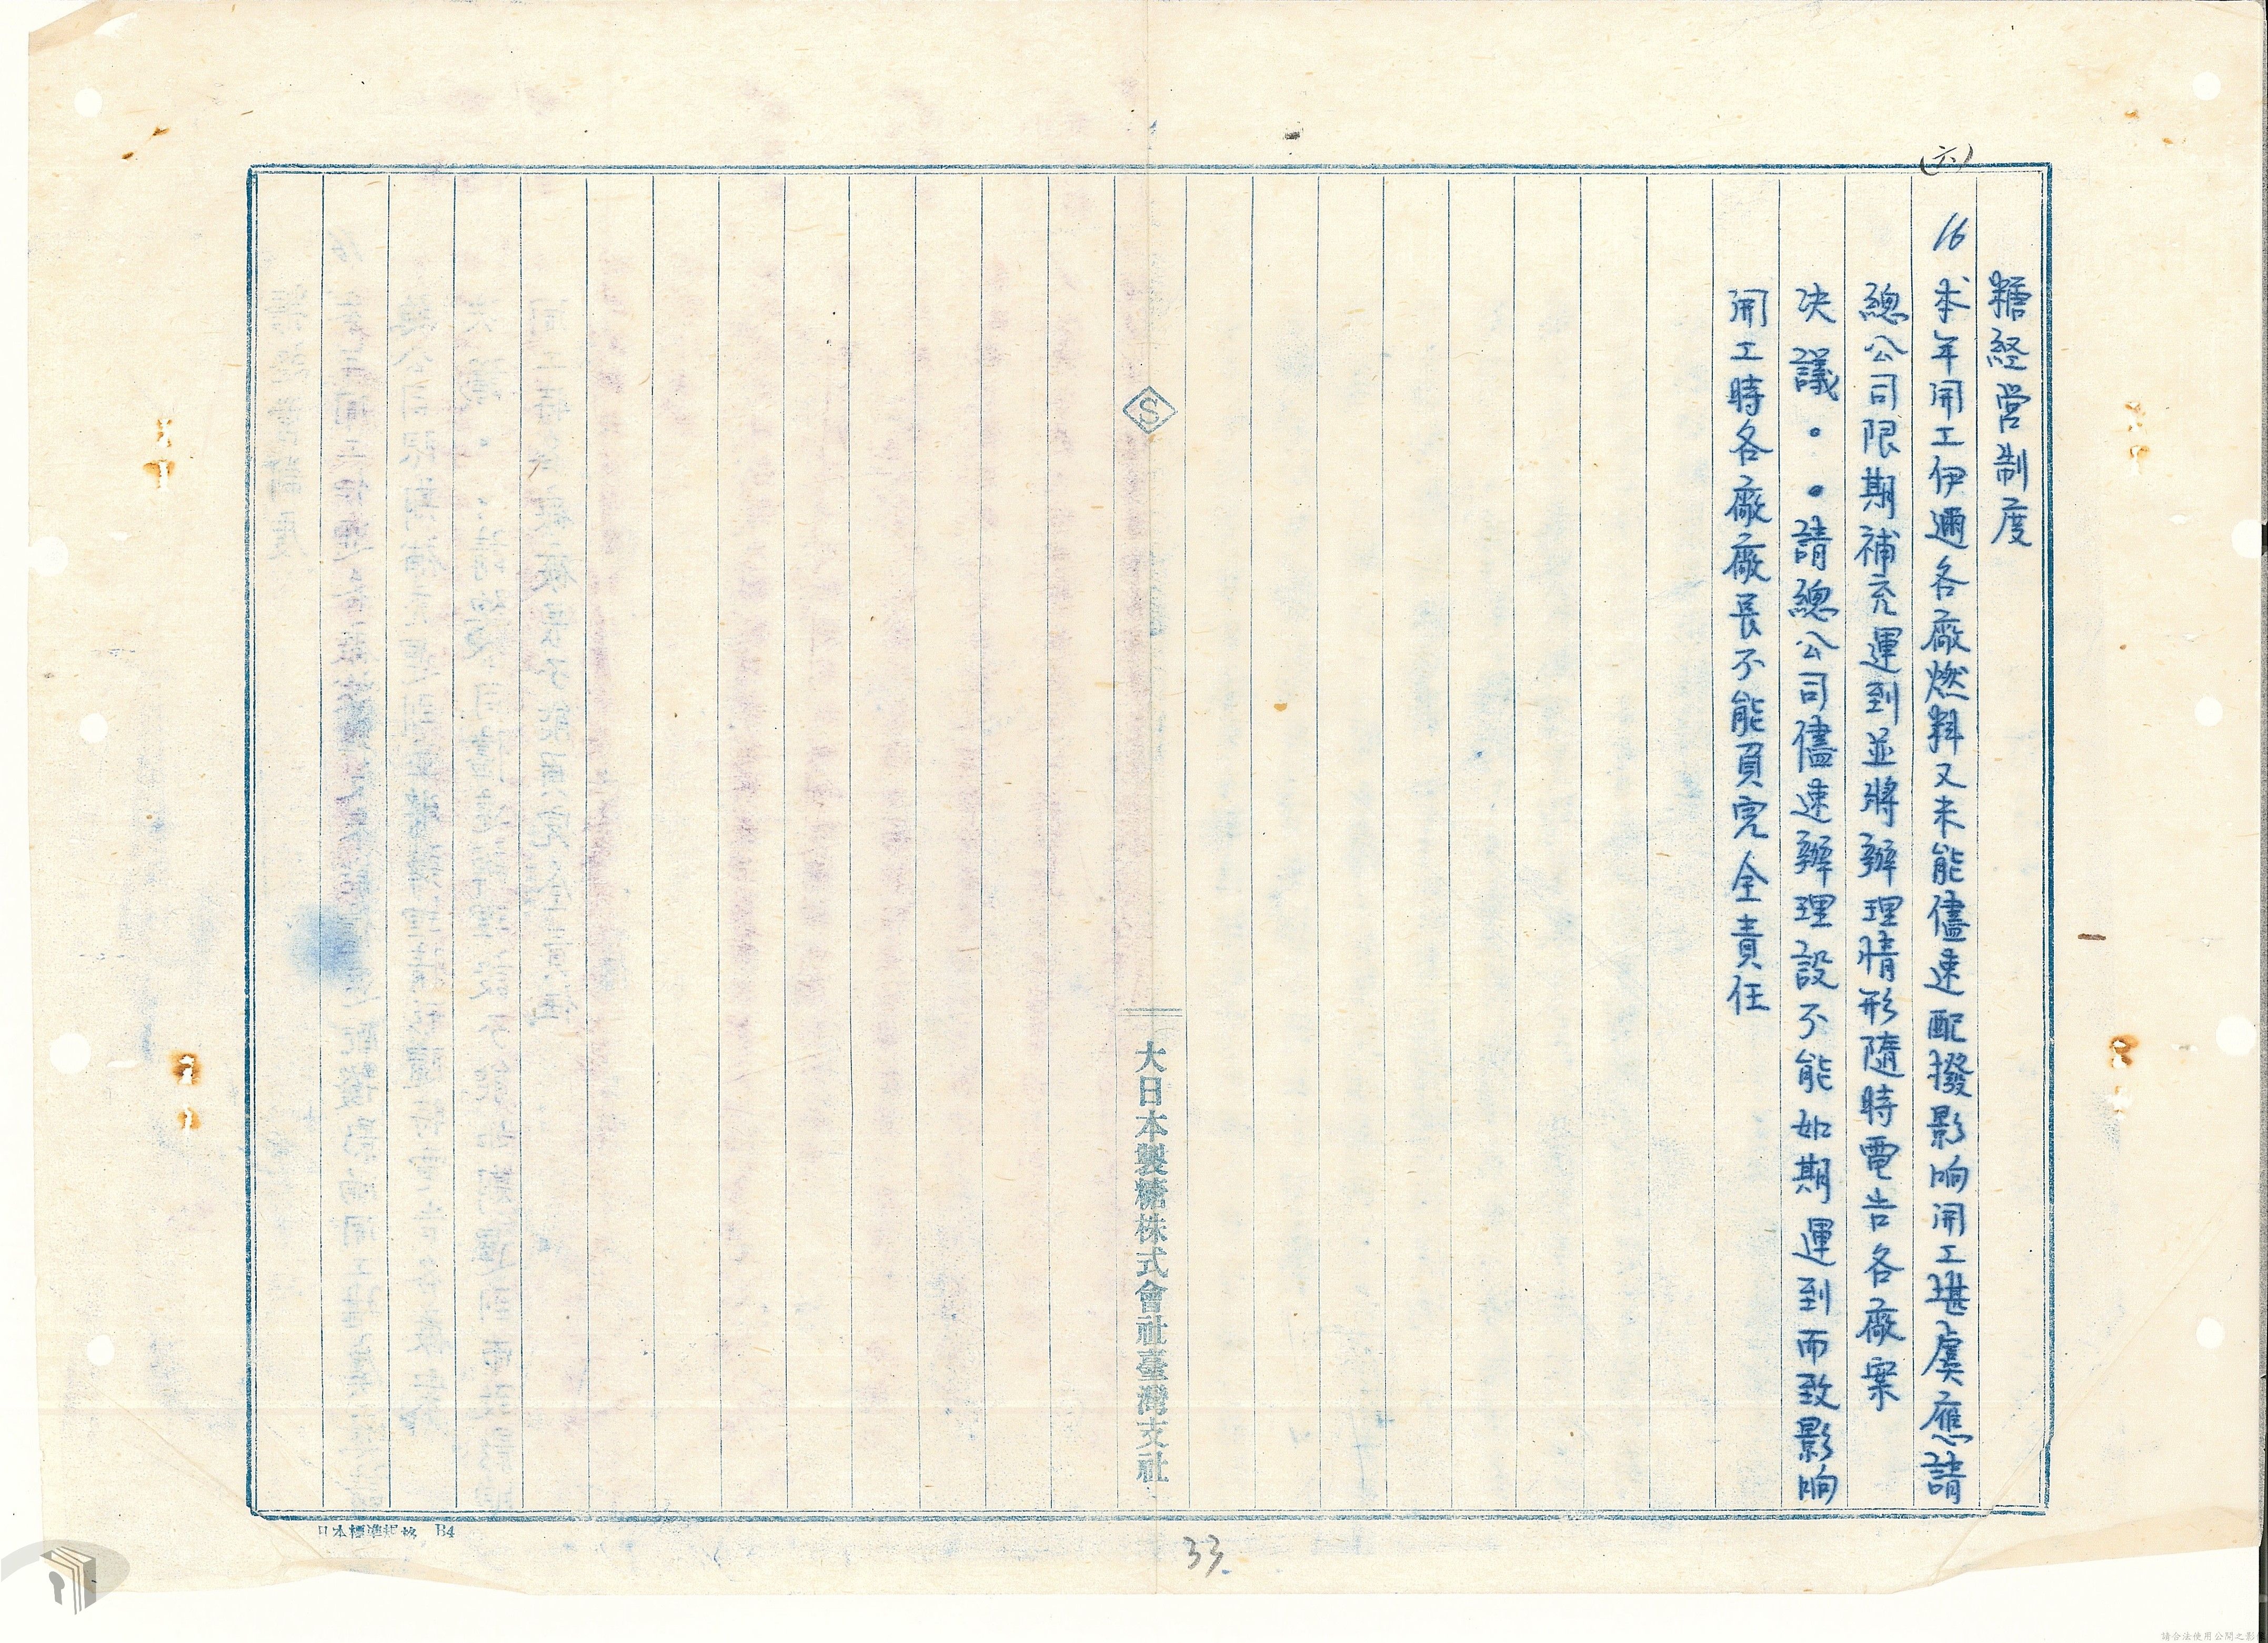 (六)
糖経営制度
16 本年開工伊邇各廠燃料又未能儘速配撥影响開工堪虞應請
總公司限期補充運到並將辦理情形隨時電告各廠案
决議・・請總公司儘速辦理設不能如期運到而致影响
開工時各廠廠長不能負完全責任
S
大日本製糖株式會社臺灣支社
日本標準規格 B4
33
請合法使用公開之影